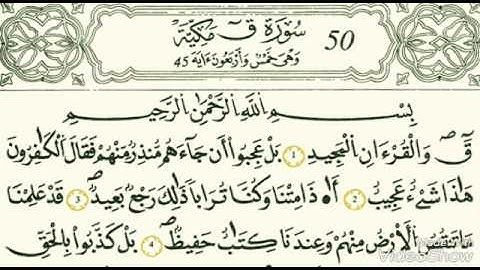 سُورَةُ قٓ مَكِّيَّة 50
وَهِيَ خَمْسٌ وَأَرْبَعُونَ ءَايَةً 45
بِسْمِ اللَّهِ الرَّحْمَٰنِ الرَّحِيمِ
قٓ وَالْقُرْءَانِ الْمَجِيدِ 1 بَلْ عَجِبُوٓا۟ أَن جَآءَهُم مُّنذِرٌ مِّنْهُمْ فَقَالَ الْكَٰفِرُونَ
هَٰذَا شَىْءٌ عَجِيبٌ 2 أَ۟ذَا مِتْنَا وَكُنَّا تُرَابًا ذَٰلِكَ رَجْعٌ بَعِيدٌ 3 قَدْ عَلِمْنَا
مَا تَنقُصُ الْأَرْضُ مِنْهُمْ وَعِندَنَا كِتَٰبٌ حَفِيظٌ 4 بَلْ كَذَّبُوا۟ بِالْحَقِّ
Made with
VideoShow